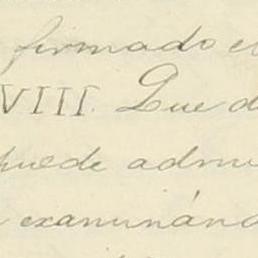 firmado el
VIII. Que d
puede admi
examiná